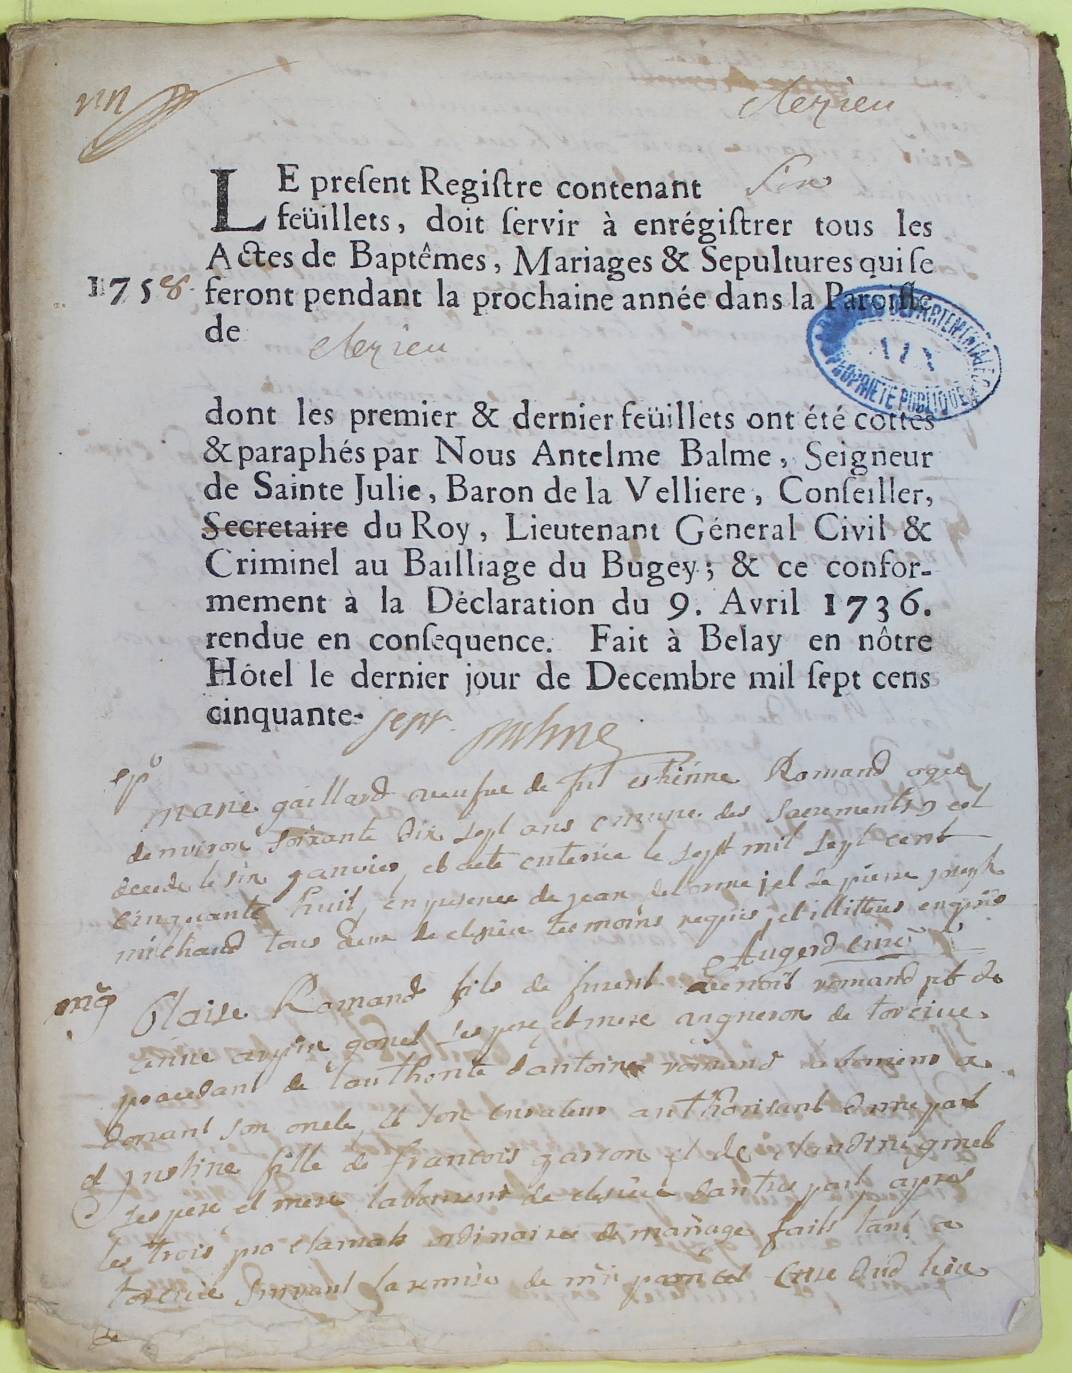 Clezieu
LE preſent Regiſtre contenant Six
feüillets, doit ſervir à enrégiſtrer tous les
Actes de Baptêmes, Mariages & Sepultures qui ſe
1758 feront pendant la prochaine année dans la Paroiſſe
de Clezieu
ARCHIVES DEPARTEMENTALES
AIN
PROPRIETE PUBLIQUE
dont les premier & dernier feüillets ont été cottés
& paraphés par Nous Antelme Balme, Seigneur
de Sainte Julie, Baron de la Velliere, Conſeiller,
Secretaire du Roy, Lieutenant Géneral Civil &
Criminel au Bailliage du Bugey; & ce confor-
mement à la Déclaration du 9. Avril 1736.
rendue en conſequence. Fait à Belay en nôtre
Hôtel le dernier jour de Decembre mil ſept cens
cinquante-sept. Balme
marie gaillard veufue de fut estienne Romand agee
denviron soixante dix sept ans munie des sacrements est
decede le six janvier et a ete enterree le sept mil sept cent
cinquante huit, en presence de jean delorme et de pierre joseph
michaud tous deux de temoins requis et illitteres enquis
Augerd curé
Blaise Romand fils de furent benoit romand et de
gonet ses pere et mere vigneron de torcieu
procedant de lauthorité dantoine romand
son oncle et son curateur authorisant dune part
et justine fille de francois garron et de claudine
ses pere et mere dautre part apres
les trois proclamats ordinaires de mariage faits tant a
torcieu suivant la remise de curé dud lieu